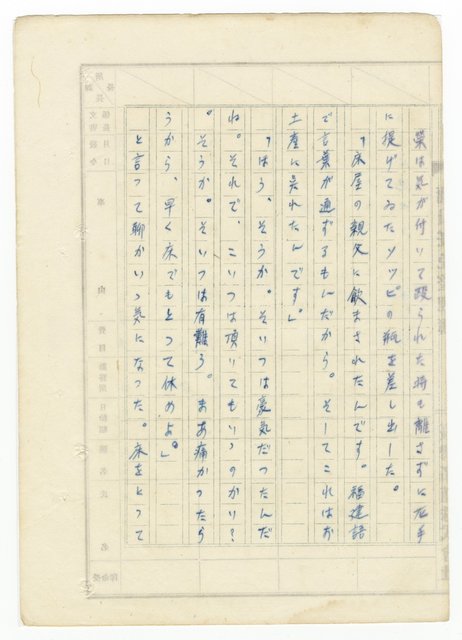 葉は気が付いて殴られた時も離さずに左手
に提げてゐたメツピの瓶を差し出した。
「床屋の親父に飲まされたんです。福建語
で言葉が通ずるもんだから。そしてこれはお
土産に呉れたんです。」
「ほう、そうか。そいつは豪気だつたんだ
ね。それで、こいつは頂いてもいゝのかい?
。そうか。そいつは有難う。まあ痛かつたら
うから、早く床でもとつて休めよ。」
と言つて聊かいゝ気になつた。床をとつて